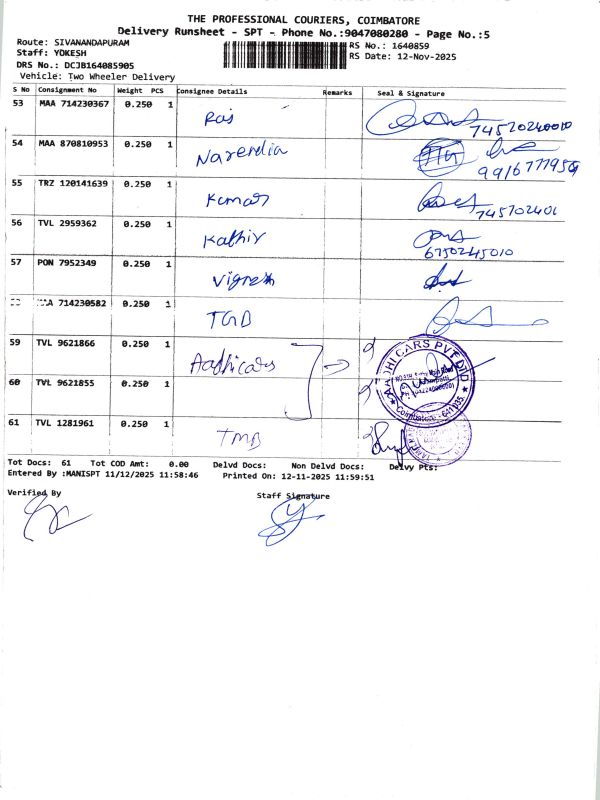 THE PROFESSIONAL COURIERS, COIMBATORE
Delivery Runsheet - SPT - Phone No.:9047080280 - Page No.:5
Route: SIVANANDAPURAM
Staff: YOKESH
DRS No.: DCJB164085905
Vehicle: Two Wheeler Delivery
RS No.: 1640859
RS Date: 12-Nov-2025
S No Consignment No Weight PCS Consignee Details Remarks Seal & Signature
53 MAA 714230367 0.250 1 Raj 74520240010
54 MAA 870810953 0.250 1 Narendra
55 TRZ 120141639 0.250 1 Kumar 745702401
56 TVL 2959362 0.250 1 Kathir 6750245010
57 PON 7952349 0.250 1 Vignesh
714230582 0.250 1 TGB
59 TVL 9621866 0.250 1 Aadhicars
60 TVL 9621855 0.250 1
AADHI CARS PVT LTD
Coimbatore - 641 035.
61 TVL 1281961 0.250 1 TMB
Tot Docs: 61 Tot COD Amt: 0.00 Delvd Docs: Non Delvd Docs: Delvy Pts:
Entered By :MANISPT 11/12/2025 11:58:46 Printed On: 12-11-2025 11:59:51
Verified By Staff Signature